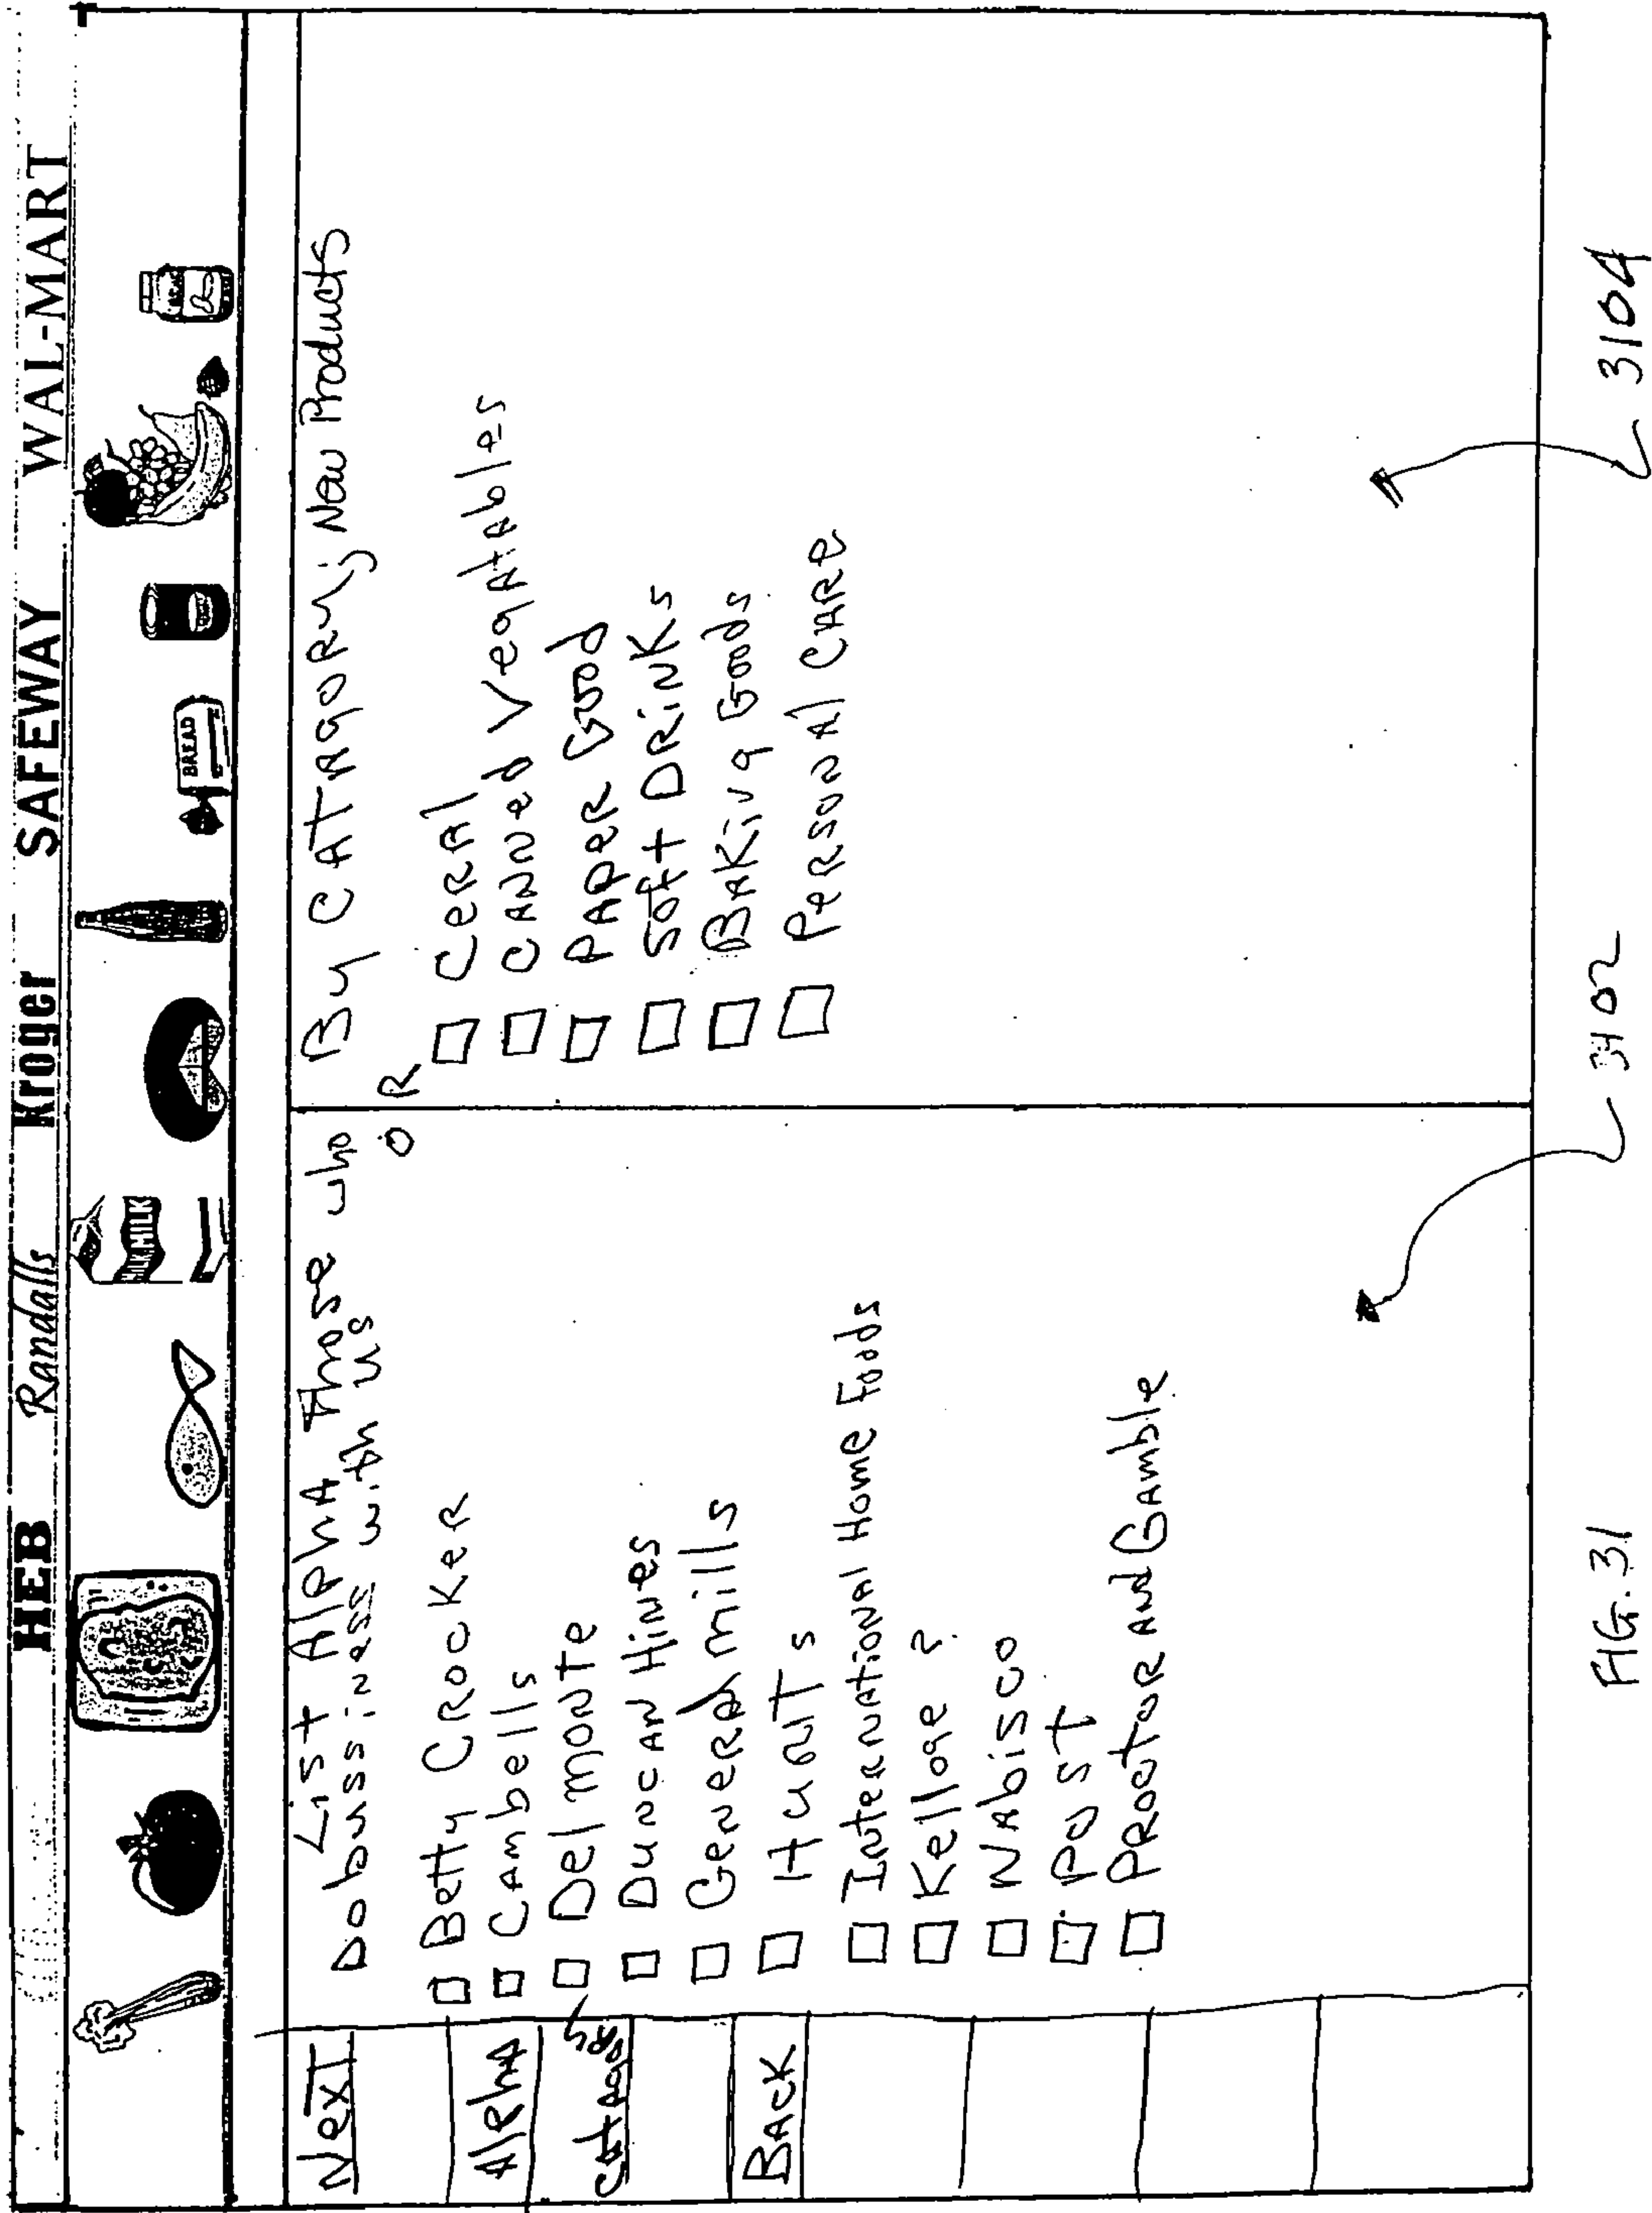 HEB Randalls Kroger SAFEWAY WAL-MART
MILK
BREAD
Next
Alpha
Catagory
Back
List Alpha those who
Do bussiness with us
OR
By Catagory; New Products
Betty Crocker
Cambells
Delmonte
Duncan Hines
General mills
Hunts
International Home Foods
Kelloge ?
Nabisco
Post
Proctor and Gamble
Ceral
Canned Vegatables
Paper Good
Soft Drinks
Baking Goods
Personal Care
3102
3104
FIG. 31